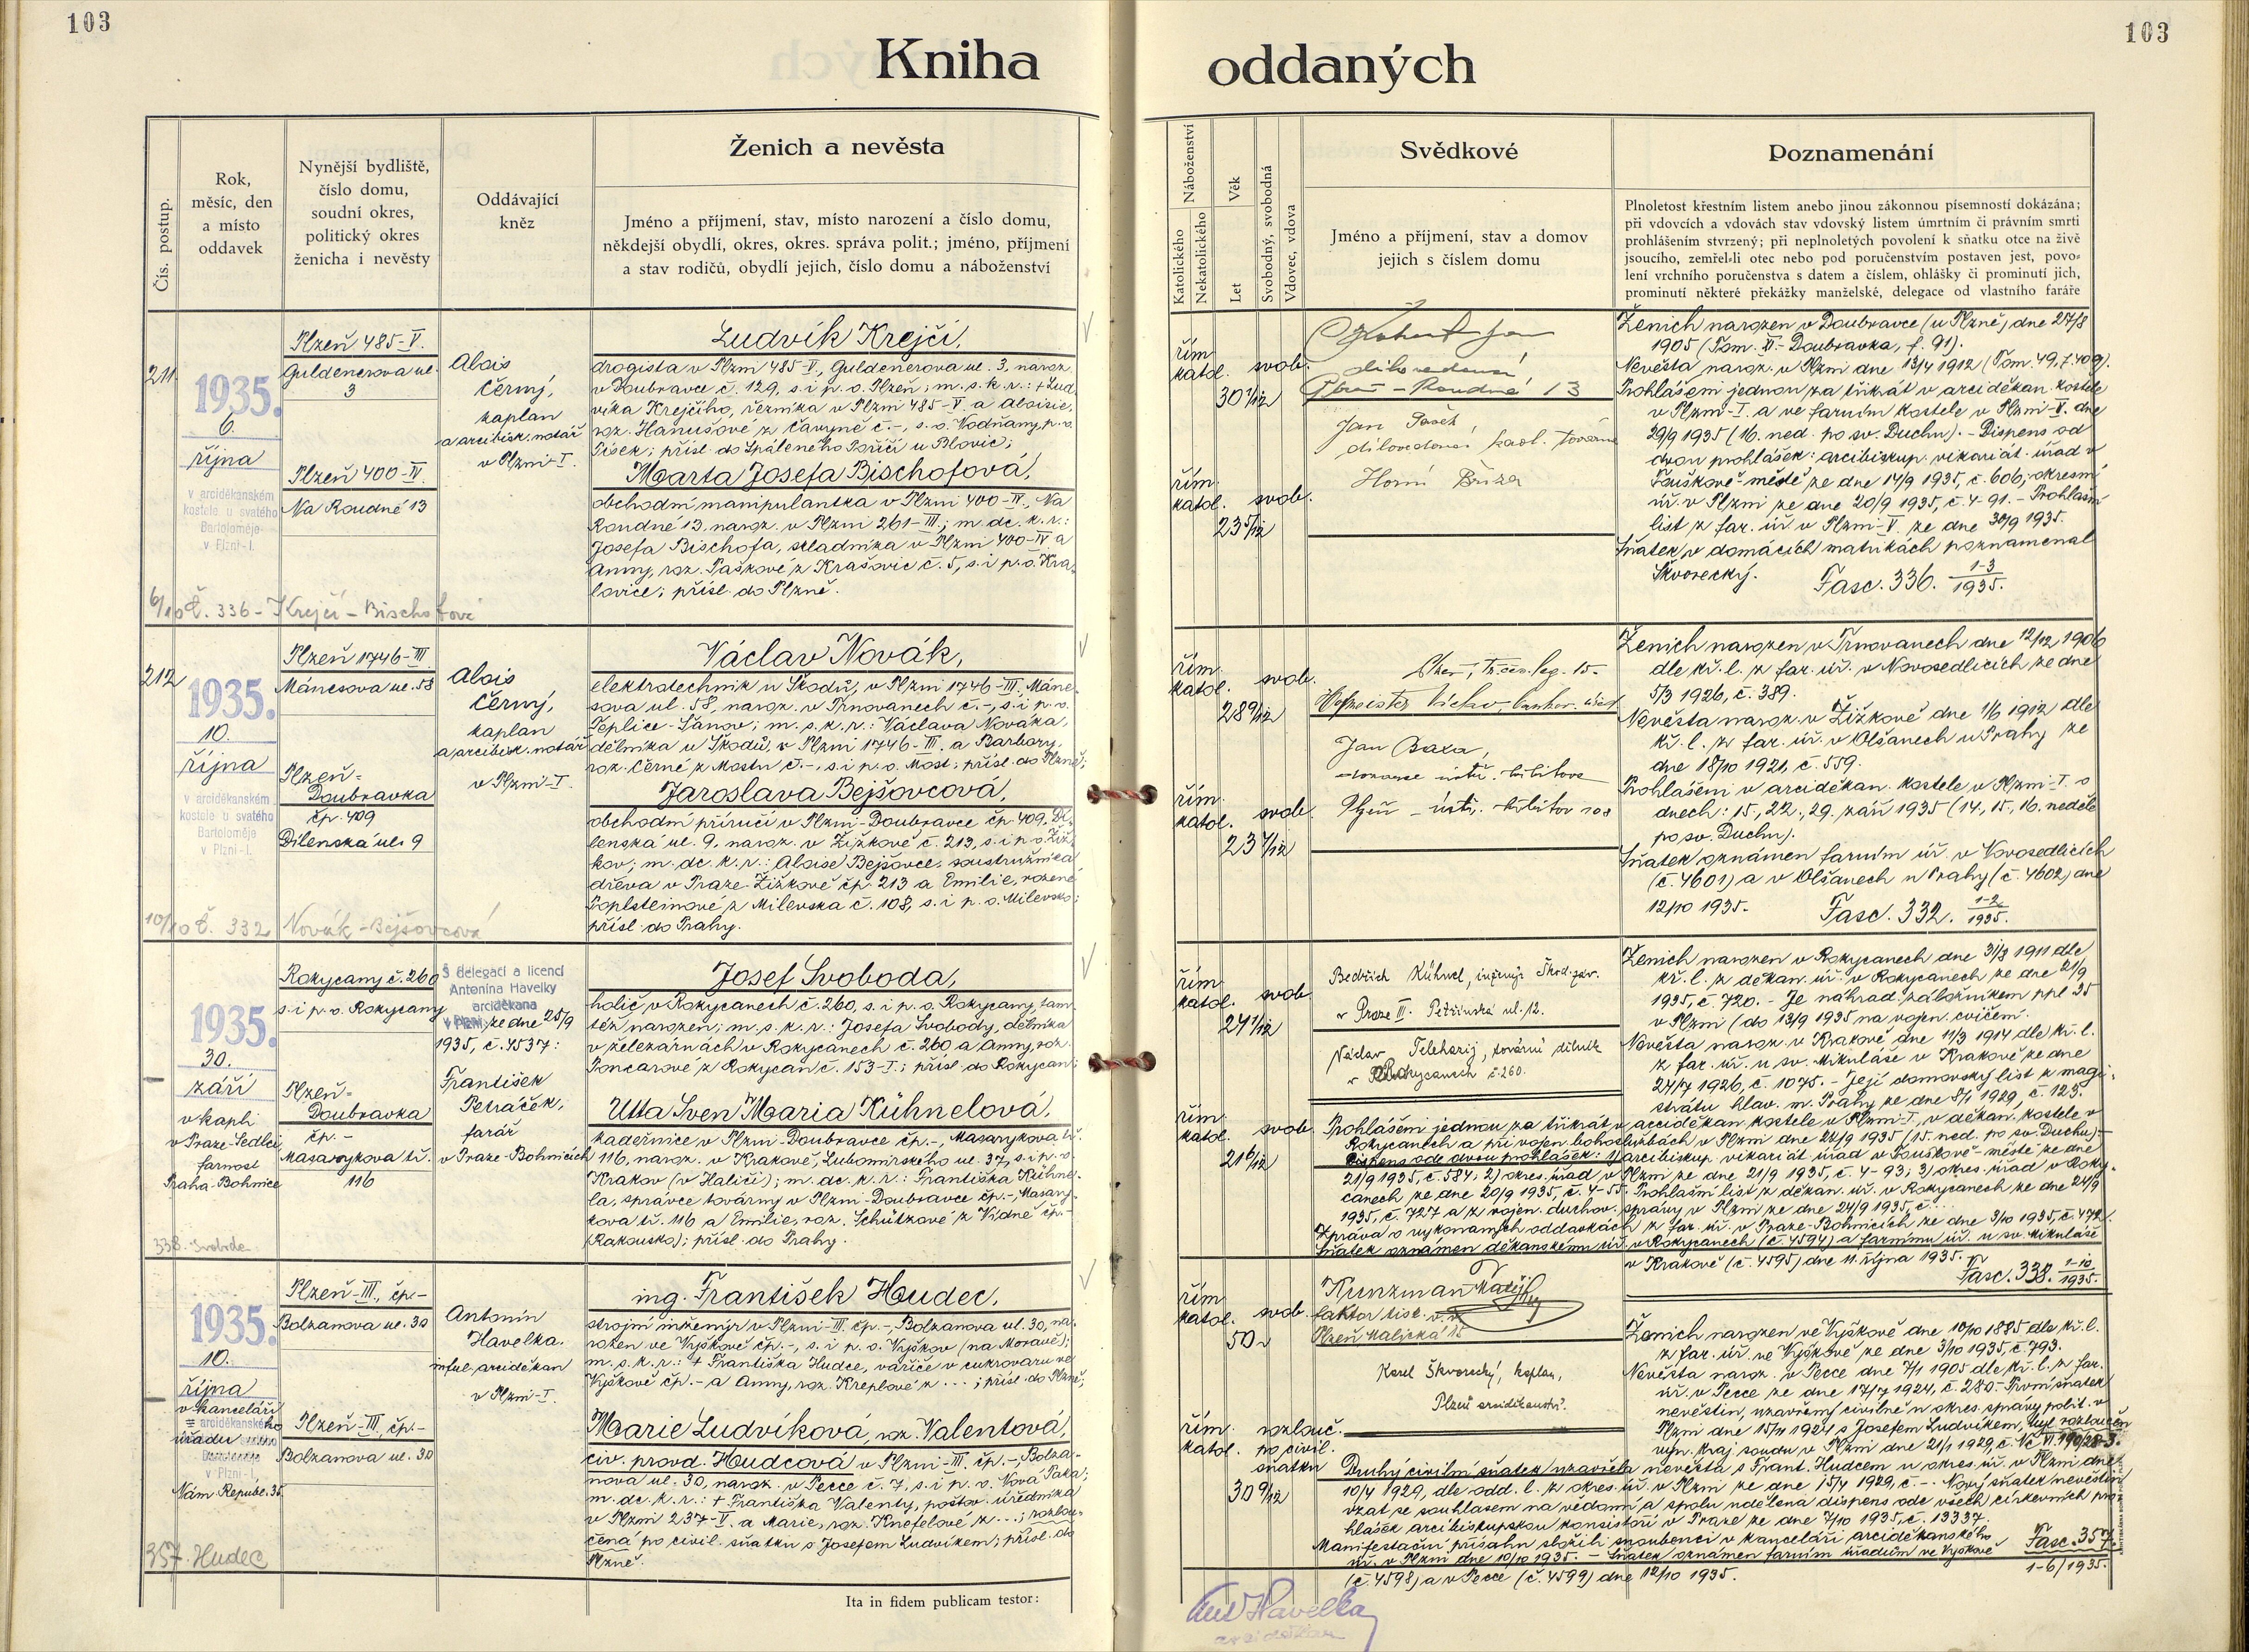 103
103
Kniha
oddaných
Čís. postup.
Rok,
měsíc, den
a místo
oddavek
Nynější bydliště,
číslo domu,
soudní okres,
politický okres
ženicha i nevěsty
Oddávající
kněz
Ženich a nevěsta
Jméno a příjmení, stav, místo narození a číslo domu,
někdejší obydlí, okres, okres. správa polit.; jméno, příjmení
a stav rodičů, obydlí jejich, číslo domu a náboženství
Náboženství
Katolického
Nekatolického
Věk
Let
Svobodný, svobodná
Vdovec, vdova
Svědkové
Jméno a příjmení, stav a domov
jejich s číslem domu
Poznamenání
Plnoletost křestním listem anebo jinou zákonnou písemností dokázána;
při vdovcích a vdovách stav vdovský listem úmrtním či právním smrti
prohlášením stvrzený; při neplnoletých povolení k sňatku otce na živě
jsoucího, zemřel-li otec nebo pod poručenstvím postaven jest, povo-
lení vrchního poručenstva s datem a číslem, ohlášky či prominutí jich,
prominutí některé překážky manželské, delegace od vlastního faráře
211
1935.
6.
října
v arciděkanském
kostele u svatého
Bartoloměje
v Plzni-I.
Plzeň 485-V.
Guldenerova ul.
3
Plzeň 400-IV
Na Roudné 13
Alois
Černý,
kaplan
a arcibisk. notář
v Plzni-I.
Ludvík Krejčí,
drogista v Plzni 485-V., Guldenerova ul. 3, naroz.
v Doubravce č. 129, s. i p. o. Plzeň; m. s. k. r.: +Lud-
víka Krejčího, řezníka v Plzni 485-V. a Aloisie,
roz. Hanušové z Čavyně č.-, s. o. Vodňany, p. o.
Písek; přísl. do Spáleného Poříčí u Blovic;
Marta Josefa Bischofová,
obchodní manipulantka v Plzni 400-IV., Na
Roudné 13, naroz. v Plzni 261-III.; m. dc. k. r.:
Josefa Bischofa, skladníka v Plzni 400-IV a
Anny, roz. Paškové z Krašovic č. 5, s. i p. o. Kra-
lovice; přísl. do Plzně.
6/10 č. 336 - Krejčí - Bischofová
řím.
katol.
30 1/12
svob.
řím.
katol.
23 5/12
svob.
Plzeň - Roudná 13
Jan
Horní Bříza
Ženich narozen v Doubravce (u Plzně) dne 27/8
1905 (Tom. XI.- Doubravka, f. 91).
Nevěsta naroz. v Plzni dne 13/4 1912 (Tom. 49, f. 409).
Prohlášeni jednou za třikrát v arciděkan. kostele
v Plzni-I. a ve farním kostele v Plzni-V. dne
29/9 1935 (16. ned. po sv. Duchu). - Dispens od
dvou prohlášek: arcibiskup. vikariát. úřad v
Touškově-městě ze dne 14/9 1935, č. 606; okresní
úř. v Plzni ze dne 20/9 1935, č. 4-91. - Prohlašní
list z far. úř. v Plzni-V. ze dne 30/9 1935.
Sňatek v domácích matrikách poznamenal
Škvorecký.
Fasc. 336. 1-3/1935.
212
1935.
10.
října
v arciděkanském
kostele u svatého
Bartoloměje
v Plzni-I.
Plzeň 1746-III
Mánesova ul. 58
Plzeň-
Doubravka
čp. 409
Dílenská ul. 9
Alois
Černý,
kaplan
a arcibisk. notář
v Plzni-I.
Václav Novák,
elektrotechnik u Škodů, v Plzni 1746-III., Máne-
sova ul. 58, naroz. v Trnovanech č.-, s. i p. o.
Teplice-Šanov; m. s. k. r.: Václava Nováka,
dělníka u Škodů, v Plzni 1746-III. a Barbory,
roz. Černé z Mostu č.-, s. i p. o. Most; přísl. do Plzně;
Jaroslava Bejšovcová,
obchodní příručí v Plzni-Doubravce čp. 409, Dí-
lenská ul. 9, naroz. v Žižkově č. 213, s. i p. o. Žiž-
kov; m. dc. k. r.: Aloise Bejšovce, soustružníka
dřeva v Praze-Žižkově čp. 213 a Emilie, rozené
Poplsteinové z Milevska č. 108, s. i p. o. Milevsko;
přísl. do Prahy.
10/10 č. 332 Novák - Bejšovcová
řím.
katol.
28 9/12
svob.
řím.
katol.
23 4/12
svob.
Jan
Plzeň
Ženich narozen v Trnovanech dne 12/12 1906
dle kř. l. z far. úř. v Novosedlicích ze dne
5/3 1926, č. 389.
Nevěsta naroz. v Žižkově dne 1/6 1912 dle
kř. l. z far. úř. v Olšanech u Prahy ze
dne 18/10 1921, č. 559.
Prohlášeni v arciděkan. kostele v Plzni-I. o
dnech: 15., 22., 29. září 1935 (14., 15., 16. neděle
po sv. Duchu).
Sňatek oznámen farním úř. v Novosedlicích
(č. 4601) a v Olšanech u Prahy (č. 4602) dne
12/10 1935.
Fasc. 332. 1-2/1935.
1935.
30.
září
v kapli
v Praze-Sedlci
farnost
Praha-Bohnice
Rokycany č. 260
s. i p. o. Rokycany
Plzeň-
Doubravka
čp. -
Masarykova tř.
116
S delegací a licencí
Antonína Havelky
arciděkana
v Plzni, ze dne 25/9
1935, č. 4537:
František
Petráček,
farář
v Praze-Bohnicích
Josef Svoboda,
holič v Rokycanech č. 260, s. i p. o. Rokycany, tam-
též narozen; m. s. k. r.: Josefa Svobody, dělníka
v železárnách v Rokycanech č. 260 a Anny, roz.
Poncarové z Rokycan č. 153-I.; přísl. do Rokycan;
Utta Sven Maria Kühnelová,
kadeřnice v Plzni-Doubravce čp.-, Masarykova tř.
116, naroz. v Krakově, Lubomirského ul. 37, s. i p. o.
Krakov (v Haliči); m. dc. k. r.: Františka Kühne-
la, správce továrny v Plzni-Doubravce čp.-, Masary-
kova tř. 116 a Emilie, roz. Schützové z Vídně čp.-
(Rakousko); přísl. do Prahy.
338. Svoboda
řím.
katol.
24 1/12
svob.
řím.
katol.
21 6/12
svob.
Bedřich Kühnel, inženýr Škod. záv.
v Praze III. Petřínská ul. 12.
Václav Telehazij, tovární dělník
v Rokycanech č. 260.
Ženich narozen v Rokycanech dne 31/8 1911 dle
kř. l. z děkan. úř. v Rokycanech ze dne 21/9
1935, č. 720. - Je náhrad. záložníkem ppl 35
v Plzni (do 13/9 1935 na vojen. cvičení.
Nevěsta naroz. v Krakově dne 11/3 1914 dle kř. l.
z far. úř. u sv. Mikuláše v Krakově ze dne
24/7 1926, č. 1075. - Její domovský list z magi-
strátu hlav. m. Prahy ze dne 8/1 1929, č. 123.
Prohlášeni jednou za třikrát v arciděkan. kostele v Plzni-I., v děkan. kostele v
Rokycanech a při vojen. bohoslužbách v Plzni dne 22/9 1935 (15. ned. po sv. Duchu).-
Dispens ode dvou prohlášek: 1) arcibiskup. vikariát. úřad v Touškově-městě ze dne
21/9 1935, č. 584; 2) okres. úřad v Plzni ze dne 21/9 1935, č. 4-93; 3) okres. úřad v Roky-
canech ze dne 20/9 1935, č. 4-55. Prohlašní list z děkan. úř. v Rokycanech ze dne 24/9
1935, č. 727 a z vojen. duchov. správy v Plzni ze dne 24/9 1935, č. ...
Zpráva o vykonaných oddavkách z far. úř. v Praze-Bohnicích ze dne 3/10 1935, č. 472.
Sňatek oznámen děkanskému úř. v Rokycanech (č. 4594) a farnímu úř. u sv. Mikuláše
v Krakově (č. 4595) dne 11. října 1935.
Fasc. 338. 1-10/1935.
1935.
10.
října
v kanceláři
arciděkanského
úřadu
v Plzni-I.
Nám. Republ. 35
Plzeň-III., čp.-
Bolzanova ul. 30
Plzeň-III., čp.-
Bolzanova ul. 30
Antonín
Havelka,
inful. arciděkan
v Plzni-I.
ing. František Hudec,
strojní inženýr v Plzni-III. čp.-, Bolzanova ul. 30, na-
rozen ve Vyškově čp.-, s. i p. o. Vyškov (na Moravě);
m. s. k. r.: + Františka Hudce, vařiče v cukrovaru ve
Vyškově čp.- a Anny, roz. Kreplové z ...; přísl. do Plzně;
Marie Ludvíková, roz. Valentová,
civ. provd. Hudcová v Plzni-III. čp.-, Bolza-
nova ul. 30, naroz. v Pecce č. 7, s. i p. o. Nová Paka;
m. dc. k. r.: + Františka Valenty, poštov. úředníka
v Plzni 237-V. a Marie, roz. Knefelové z ...; rozlou-
čená po civil. sňatku s Josefem Ludvíkem; přísl. do
Plzně.
357. Hudec
řím.
katol.
50
svob.
řím.
katol.
30 9/12
rozlouč.
po civil.
sňatku
Kunzman Matěj
faktor tisk. v. v.
Plzeň Malická 15
Karel Škvorecký, kaplan,
Plzeň arciděkanství.
Ženich narozen ve Vyškově dne 10/10 1885 dle kř. l.
z far. úř. ve Vyškově ze dne 3/10 1935, č. 793.
Nevěsta naroz. v Pecce dne 7/1 1905 dle kř. l. z far.
úř. v Pecce ze dne 17/7 1924, č. 280. - První sňatek
nevěstin, uzavřený civilně u okres. správy polit. v
Plzni dne 15/11 1924 s Josefem Ludvíkem, byl rozloučen
rozn. kraj. soudu v Plzni dne 21/1 1929, č.
Druhý civilní sňatek uzavřela nevěsta s Frant. Hudcem u okres. úř. v Plzni dne
10/4 1929, dle odd. l. z okres. úř. v Plzni ze dne 15/4 1929, č. -. Nový sňatek nevěstin
vzat se souhlasem na vědomí a spolu udělena dispens ode všech církevních pro-
hlášek arcibiskupskou konsistoří v Praze ze dne 7/10 1935, č. 13337.
Manifestační přísahu složili snoubenci v kanceláři arciděkanského
úř. v Plzni dne 10/10 1935. - Sňatek oznámen farním úřadům ve Vyškově
(č. 4598) a v Pecce (č. 4599) dne 12/10 1935.
Fasc. 357.
1-6/1935.
Ita in fidem publicam testor:
Ant Havelka
arciděkan